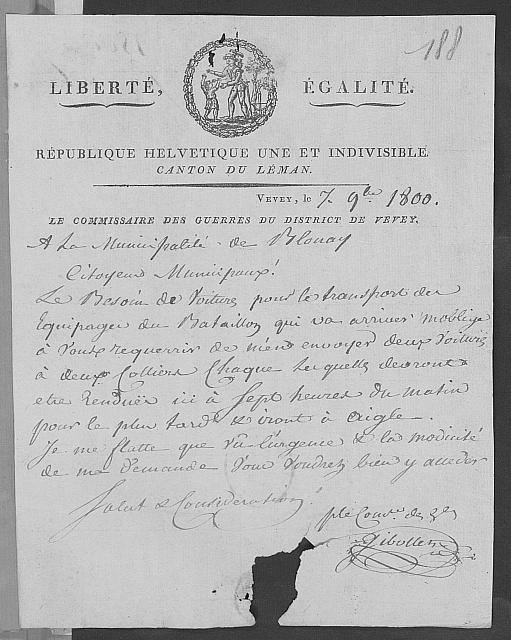 188
LIBERTÉ, ÉGALITÉ.
RÉPUBLIQUE HELVETIQUE UNE ET INDIVISIBLE.
CANTON DU LÉMAN.
VEVEY, le 7. 9bre 1800.
LE COMMISSAIRE DES GUERRES DU DISTRICT DE VEVEY,
A La Municipalité de Blonay
Citoyens Municipaux!
Le Besoin de Voitures pour le transport des
Equipages du Bataillon qui va arriver m'oblige
à Vous requerrir de m'en envoyer deux Voitures
à deux Colliers Chaque lesquelles devront
etre renduës ici à Sept heures du matin
pour le plus tard & iront à Aigle.
Je me flatte que vû l'urgence & la modicité
de ma demande Vous voudrez bien y acceder
Salut & Considération